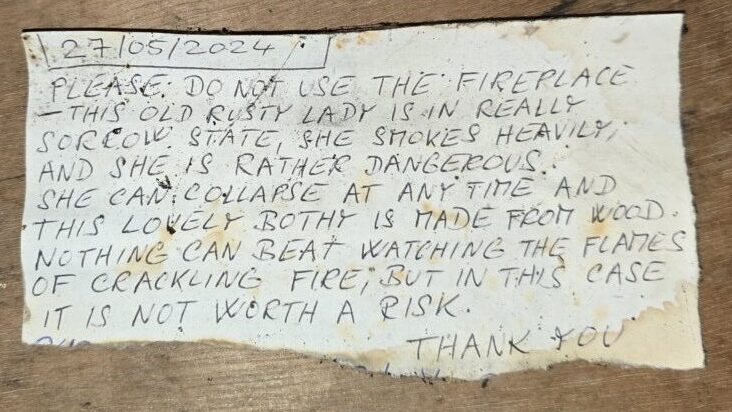 27/05/2024
PLEASE. DO NOT USE THE FIREPLACE
- THIS OLD RUSTY LADY IS IN REALLY
SORROW STATE, SHE SMOKES HEAVILY,
AND SHE IS RATHER DANGEROUS.
SHE CAN COLLAPSE AT ANY TIME AND
THIS LOVELY BOTHY IS MADE FROM WOOD.
NOTHING CAN BEAT WATCHING THE FLAMES
OF CRACKLING FIRE, BUT IN THIS CASE
IT IS NOT WORTH A RISK.
THANK YOU